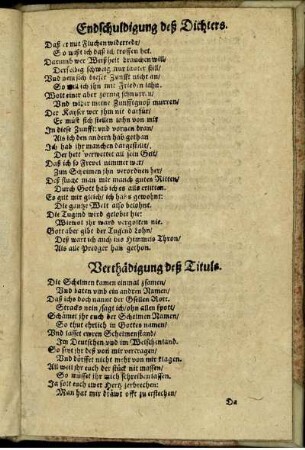 Endschuldigung deß Dichters.
Daß er mit Fluchen widerredt/
So wüßt ich daß ich troffen het.
Darumb wer Weißheit brauchen will/
Derselbig schweig nur lauter still/
Und nem sich dieser Zunfft nicht an/
So will ich ihn mit Frieden lahn.
Wolt einer aber zornig schnurrn/
Und wider meine Zunfftgnoß murren/
Der Kayser wer ihm nie darfür/
Er müst sich stellen lahn von mir
In diese Zunfft und voran dran/
Als ich den andern hab gethan
Ich hab ihr manchen dargestellt/
Der hett verwettet all sein Gelt/
Daß ich so Frevel nimmer wer/
Zum Schelmen ihn verordnen her/
Deß klage man mir manch guten Ritten/
Durch Gott hab ich es alls erlitten.
Es gilt mir gleich/ ich bins gewohnt:
Die gantze Welt also belohnt.
Die Tugend wird gelobt hie:
Wienol ihr ward vergolten nie.
Gott aber gibt der Tugend Lohn/
Deß wart ich auch ins Himmels Thron/
Als alle Prediger han gethon.
Verthädigung deß Tituls.
Die Schelmen kamen einmal zsamen/
Und baten umb ein andren Namen/
Daß ichs doch nannt der Gsellen Rott.
Stracks nein/ sagt ich/ ohn allen spott/
Schämet ihr euch der Schelmen Namen/
So thut ehrlich in Gottes namen/
Und lasset ewren Schelmenstand/
Im Deutschen und im Welschenland.
So seyt ihr deß von mir vertragen/
Und dörffet nicht mehr von mir klagen.
All weil ihr euch der stück nit massen/
So müsset ihr mich schreiben lassen.
Ja solt euch ewer Hertz zerbrechen:
Man hat mir dräwt offt zu erstechen/
Da